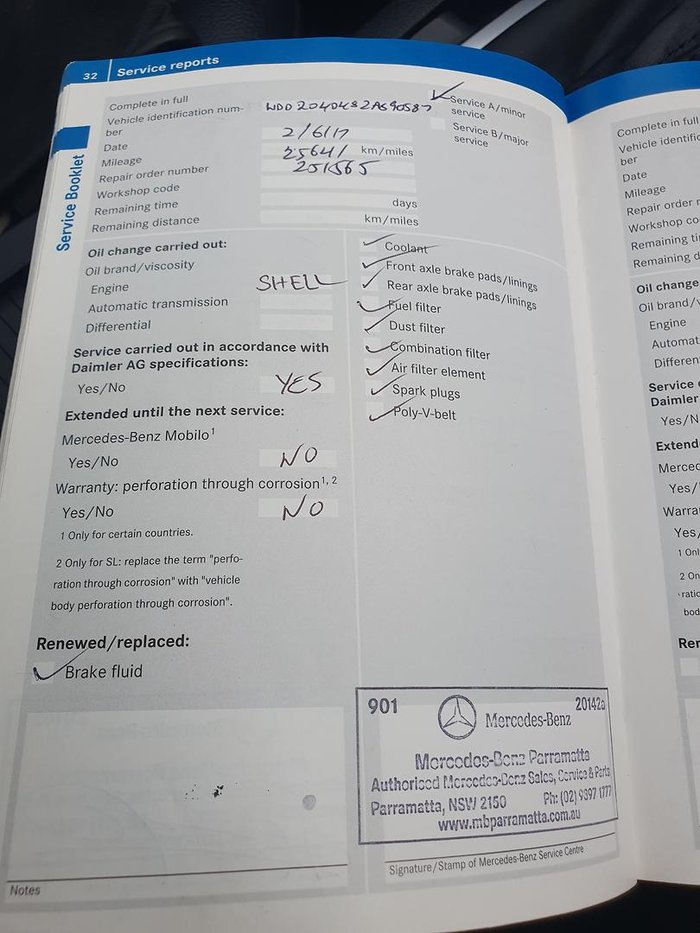 32 Service reports
Service Booklet
Complete in full
Vehicle identification num-
ber WDD2040482A690587
Date 2/6/17
Mileage 25641 km/miles
Repair order number 251565
Workshop code
Remaining time days
Remaining distance km/miles
Service A/minor
service
Service B/major
service
Oil change carried out:
Oil brand/viscosity
Engine SHELL
Automatic transmission
Differential
Service carried out in accordance with
Daimler AG specifications:
Yes/No YES
Extended until the next service:
Mercedes-Benz Mobilo1
Yes/No NO
Warranty: perforation through corrosion1, 2
Yes/No NO
1 Only for certain countries.
2 Only for SL: replace the term "perfo-
ration through corrosion" with "vehicle
body perforation through corrosion".
Renewed/replaced:
Brake fluid
Notes
Coolant
Front axle brake pads/linings
Rear axle brake pads/linings
Fuel filter
Dust filter
Combination filter
Air filter element
Spark plugs
Poly-V-belt
901 Mercedes-Benz 20142a
Mercedes-Benz Parramatta
Authorised Mercedes-Benz Sales, Service & Parts
Parramatta, NSW 2150 Ph: (02) 9397 1777
www.mbparramatta.com.au
Signature/Stamp of Mercedes-Benz Service Centre
Complete in full
Vehicle identific
ber
Date
Mileage
Repair order n
Workshop co
Remaining ti
Remaining d
Oil change
Oil brand/v
Engine
Automat
Differen
Service
Daimler
Yes/N
Extend
Merced
Yes/
Warra
Yes/
1 Onl
2 On
ratio
bod
Rer